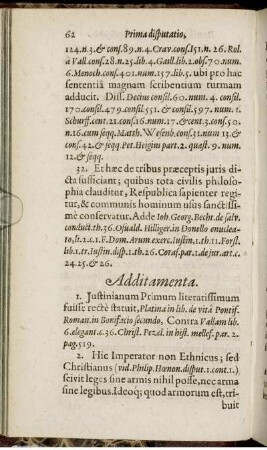 62 Prima disputatio,
124.n.3.& conf.89.n.4. Crav.conf.151.n.26. Rol.
à Vall.conf.28.n.25.lib.4. Gaill.lib.2.obs.70.num.
6. Menoch.conf.401.num.157.lib.5. ubi pro hac
sententiâ magnam scribentium turmam
adducit. Diss. Decius consil.60. num. 4. consil.
170.consil.479.consil.551.& consil.597. num. 1.
Schurff.cent.21.cons.16.num.17.& cent.3.cons.50.
n.16.cum seqq. Matth. Wesenb.cons.31.num 13.&
cons.42.& seqq. Pet. Heigius part.2. quæst. 9. num.
12.& seqq.
32. Et hæc de tribus præceptis juris di-
cta sufficiant; quibus tota civilis philoso-
phia clauditur, Respublica sapienter regi-
tur, & communis hominum usus sanctissi-
mè conservatur. Adde Ioh. Georg. Becht. de salv.
conduct.th.36. Osuald. Hilliger. in Donello enuclea-
to, lit. Dom. Arum. exerc. Iustin. 1.th 11. Forst.
lib.1.tr. Iustin. disp.1.th.26. Coras. par.1. de jur. art. c.
24.25.& 26.
Additamenta.
1. Justinianum Primum literatissimum
fuisse rectè statuit, Platina in lib. de vitâ Pontif.
Roman. in Bonifacio secundo, Contra Vallam lib.
6. elegant. c.36. Christ. Pezel. in hist. mellef. par. 2.
pag. 519.
2. Hic Imperator non Ethnicus; sed
Christianus (vid. Philip. Hœnon. disput. 1. cont. 1.)
scivit leges sine armis nihil posse, nec arma
sine legibus. Ideoq; quod armorum est, tri-
buit